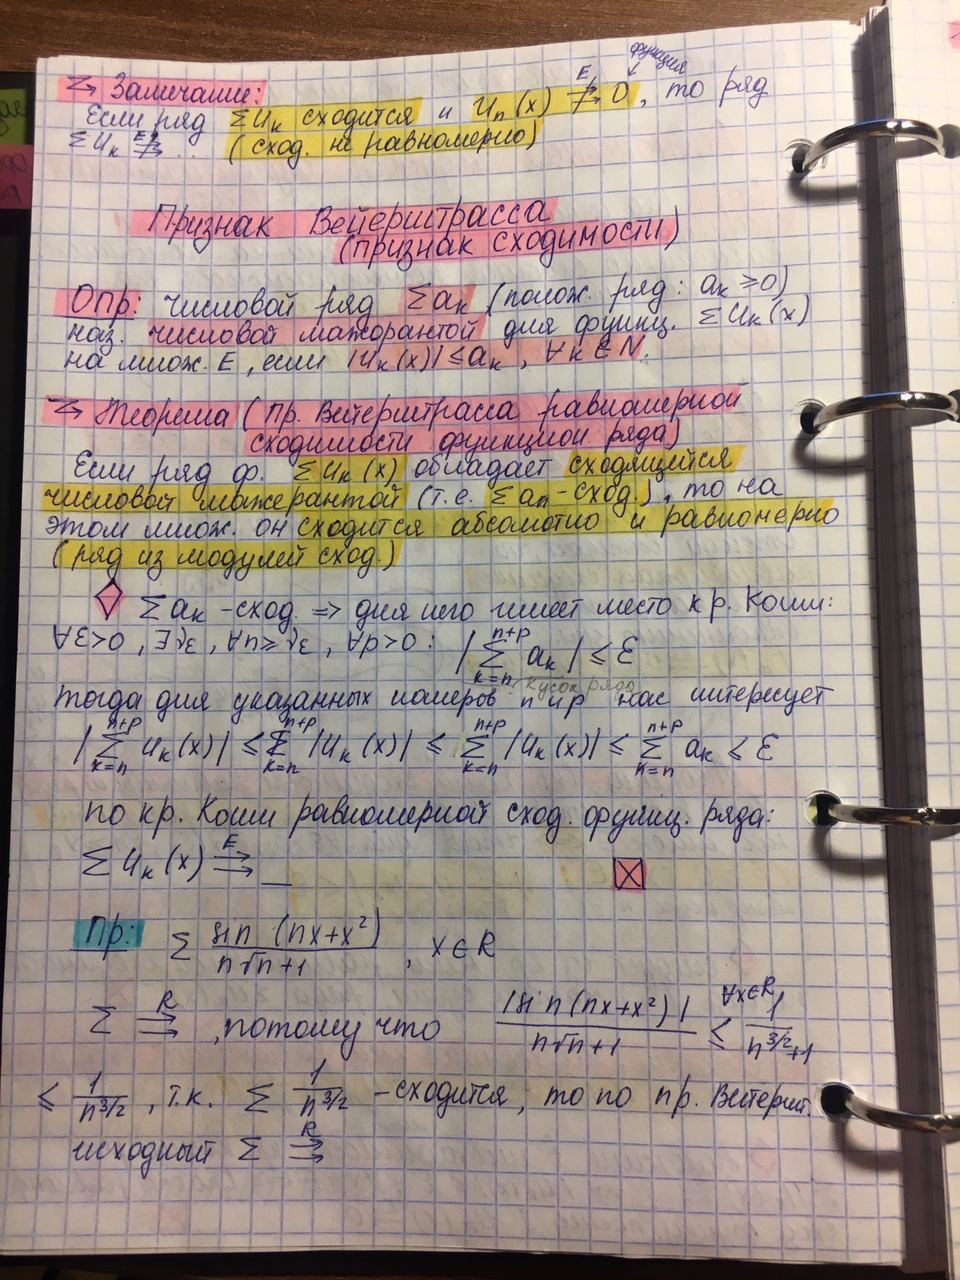 функция
↯ Замечание:
Если ряд Σuₖ сходится и uₙ(x) ⇉̸ᴱ 0, то ряд
Σuₖ ⇉̸ᴱ ... (сход. не равномерно)
Признак Вейерштрасса
(признак сходимости)
Опр: числовой ряд Σaₖ (полож. ряд: aₖ ≥ 0)
наз. числовой мажорантой для функц. Σuₖ(x)
на множ. E, если |uₖ(x)| ≤ aₖ, ∀k∈N.
↯ Теорема (пр. Вейерштрасса равномерной
сходимости функцион. ряда)
Если ряд ф. Σuₖ(x) обладает сходящейся
числовой мажерантой (т.е. Σaₙ - сход.), то на
этом множ. он сходится абсолютно и равномерно
(ряд из модулей сход.)
◇ Σaₖ - сход. => для него имеет место кр. Коши:
∀ε>0, ∃γε, ∀n≥γε, ∀p>0: |Σ_{k=n}^{n+p} aₖ| ≤ ε
(кусок ряда
тогда для указанных номеров n и p нас интересует
|Σ_{k=n}^{n+p} uₖ(x)| ≤ Σ_{k=n}^{n+p} |uₖ(x)| ≤ Σ_{k=n}^{n+p} |uₖ(x)| ≤ Σ_{n=n}^{n+p} aₖ ≤ ε
по кр. Коши равномерной сход. функц. ряда:
Σuₖ(x) ⇉ᴱ _ ⊠
Пр: Σ sin (nx+x²) / (n√n+1), x∈R
Σ ⇉ᴿ, потому что |sin(nx+x²)| / (n√n+1) ≤ ∀x∈R 1/(n^{3/2}+1)
≤ 1/n^{3/2}, т.к. Σ 1/n^{3/2} - сходится, то по пр. Вейершт.
исходный Σ ⇉ᴿ